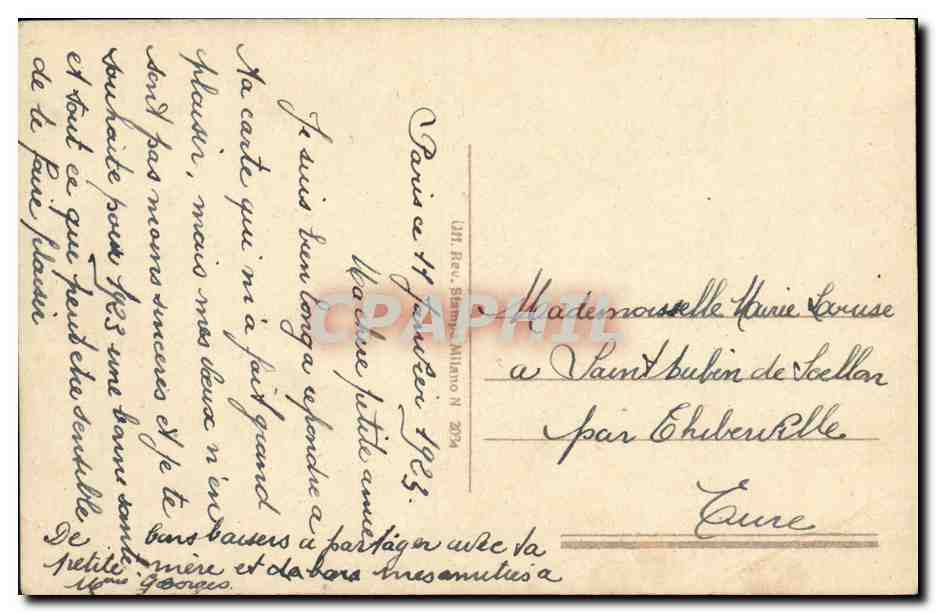 Paris ce 11 Janvier 1923.
Ma chère petite amie
Je suis bien longa repondre a
ta carte qui m'a fait grand
plaisir, mais mes vœux n'en
sont pas moins sinceres et je te
souhaite pour 1923 une bonne santé
et tout ce qui peut etre sensible
de te faire plaisir
De bons baisers a partager avec ta
petite mère et dabors mes amities a
Mme Georges.
Uff. Rev. Stampa Milano N 2034
Mademoiselle Marie Laruse
a Saint Aubin de Scellon
par Thiberville
Eure
CPAPHIL